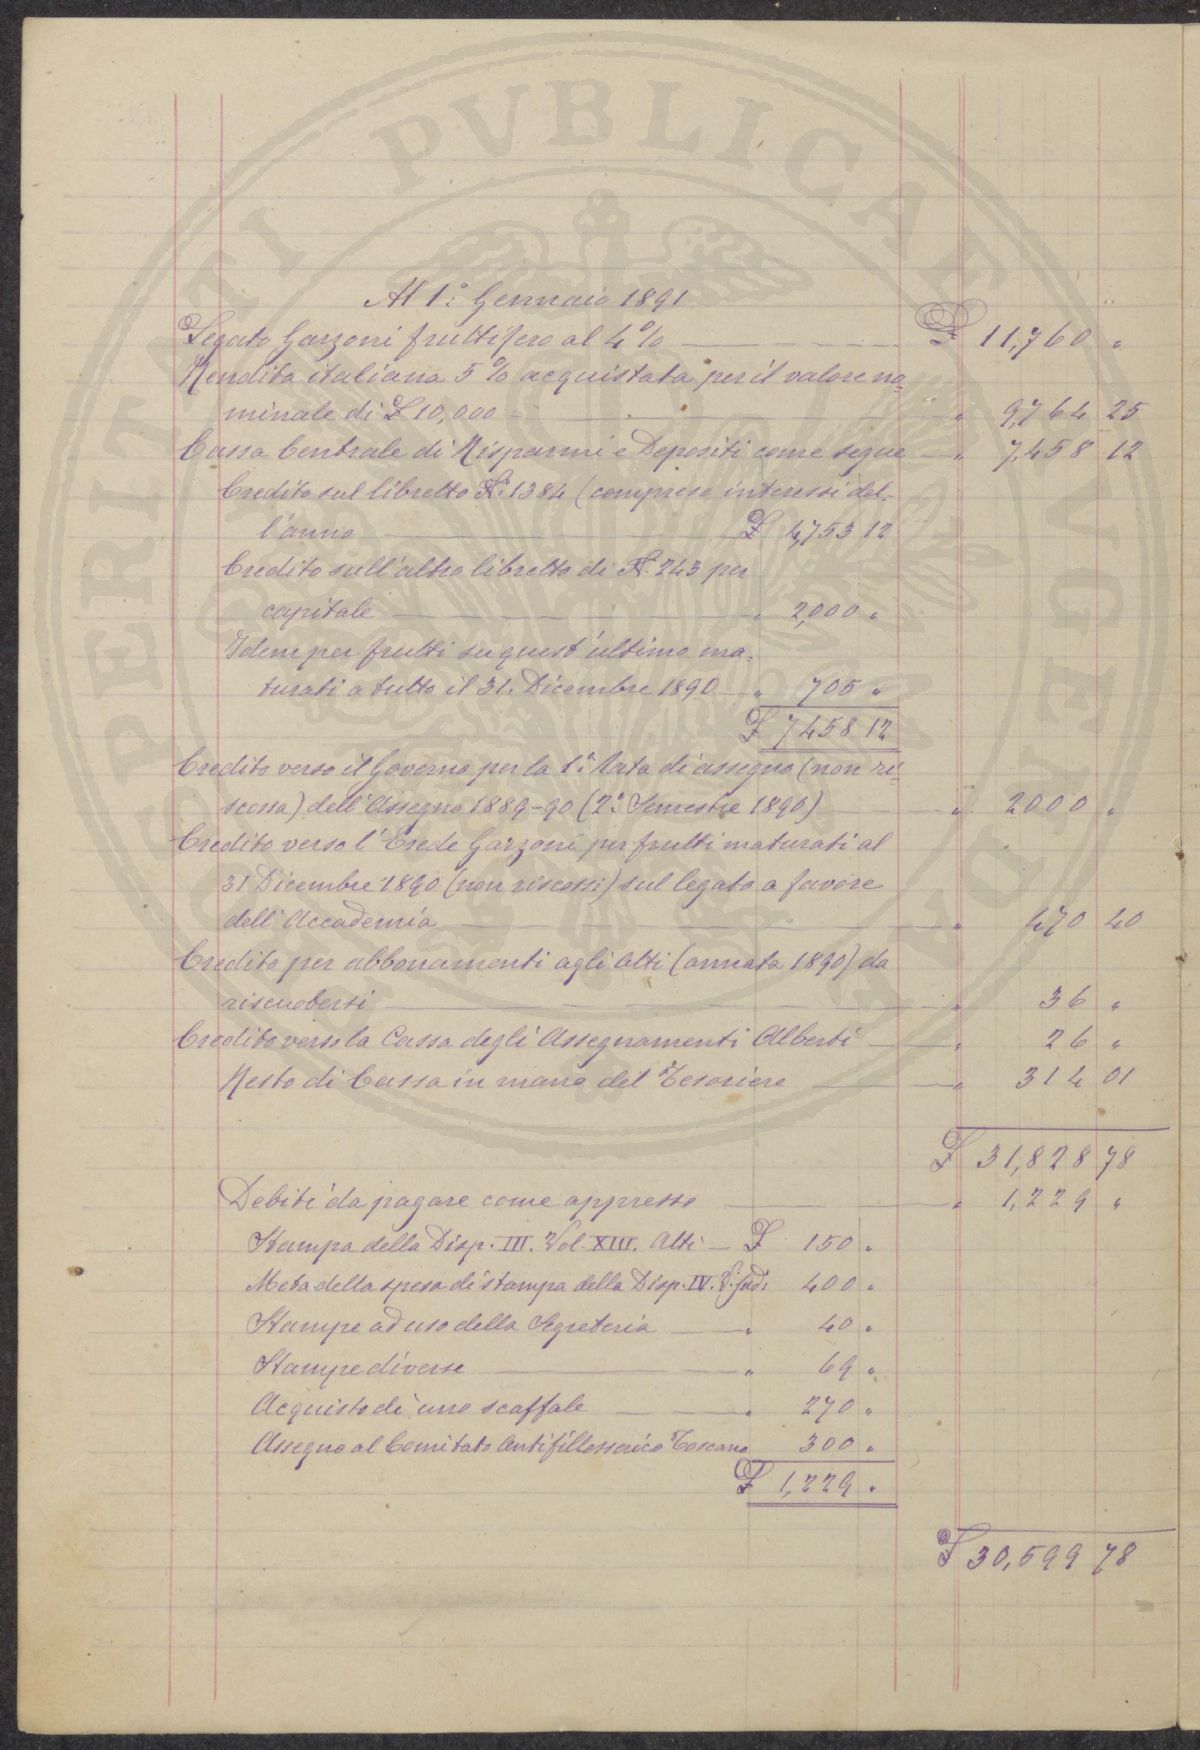 PROSPERITATI PVBLICAE AVGENDAE
Al 1.° Gennaio 1891
Legato Garzoni fruttifero al 4% £ 11,760 "
Rendita italiana 5% acquistata per il valore no-
minale di £ 10,000 " 9,764 25
Cassa Centrale di Risparmi e Depositi come segue " 7,458 12
Credito sul libretto N.° 1384 (compreso interessi del-
l'anno £ 4,753 12
Credito sull'altro libretto di N.° 243 per
capitale " 2,000 "
Idem per frutti su quest'ultimo ma-
turati a tutto il 31. Dicembre 1890 " 705 "
£ 7458 12
Credito verso il Governo per la 1.a Rata di assegno (non ri-
scossa) dell'Assegno 1889-90 (2.° Semestre 1890) " 2000 "
Credito verso l'Erede Garzoni per frutti maturati al
31 Dicembre 1890 (non riscossi) sul legato a favore
dell'Accademia " 470 40
Credito per abbonamenti agli Atti (annata 1890) da
riscuotersi " 36 "
Credito verso la Cassa degli Assegnamenti Alberti " 26 "
Resto di Cassa in mano del Tesoriere " 314 01
£ 31,828 78
Debiti da pagare come appresso " 1,229 "
Stampa della Disp. III. Vol. XIII. Atti £ 150 "
Metà della spesa di stampa della Disp. IV. 400 "
Stampe ad uso della Segreteria " 40 "
Stampe diverse " 69 "
Acquisto di uno scaffale " 270 "
Assegno al Comitato Antifillosserico Toscano 300 "
£ 1,229 "
£ 30,599 78